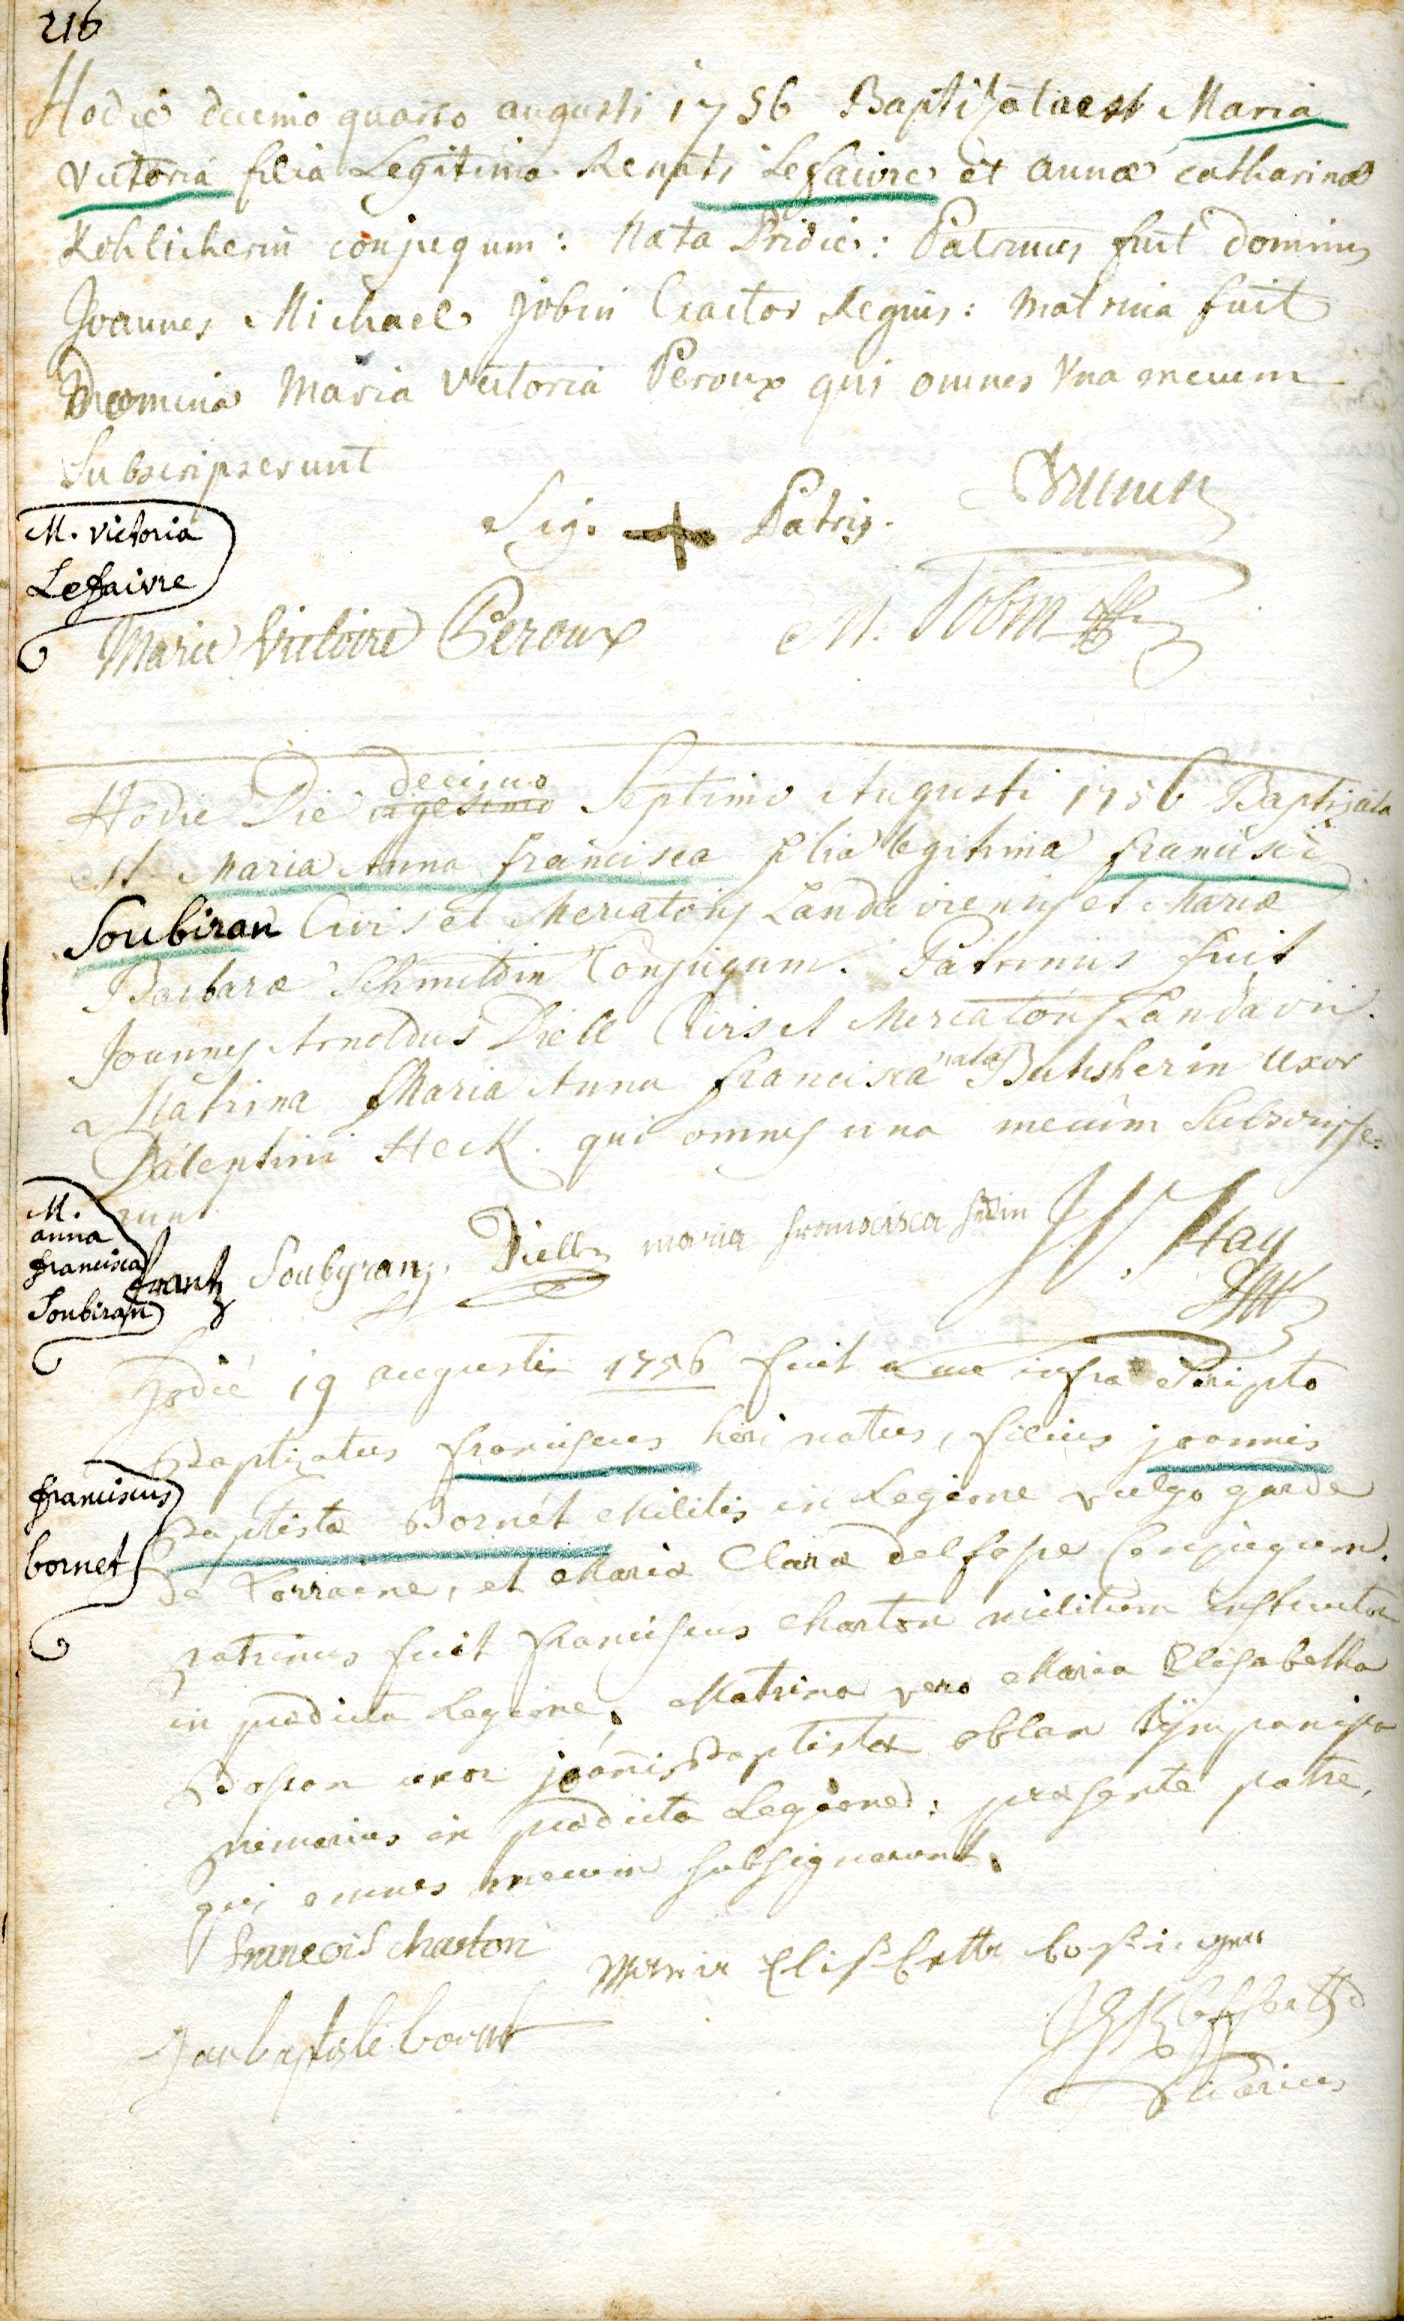 216
Hodie decimo quarto augusti 1756 Baptizata est Maria
Victoria filia Legitima Renati Lefaivre et annæ catharinæ
Kohlicherin conjugum: Nata Pridie: Patrinus fuit dominus
Joannes Michael Jobin Exactor Regius: matrina fuit
Domina Maria Victoria Peroux qui omnes Una mecum
Subscripserunt
M. Victoria
Lefaivre
Sig. + Patris.
Marie Victoire Peroux M. Jobin
Hodie Die decimo vigesimo Septimo Augusti 1756 Baptizata
est Maria Anna francisca filia legitima francisci
Soubiran Civis et Mercatoris Landaviensis et Mariæ
Barbaræ Schmidtin Conjugum. Patrinus fuit
Joannes Arnoldus Diell Civis et Mercatoris Landavii.
Matrina Maria Anna francisca nata Butscherin Uxor
Valentini Heck. qui omnes una mecum Subscripse=
runt
M.
anna
francisca
Soubiran
frantz Soubyran, Diell maria francisca Hay
hodie 19 augusti 1756 fuit a me infra Scripto
Baptizatus franciscus heri natus, filius joannis
Baptistæ Bornet Militis in Legione vulgo garde
de Lorraine, et Mariæ Claræ Conjugum.
patrinus fuit franciscus charton militum instructor
in prædicta Legione, Matrina vero Maria Elisabetha
uxor joannis Baptistæ oblan tympanista
primarius in prædicta Legione: præsente patre,
qui omnes mecum subsignarunt.
franciscus
bornet
francois charton Maria Elisabetta
Jan baptiste bornet
vicarius